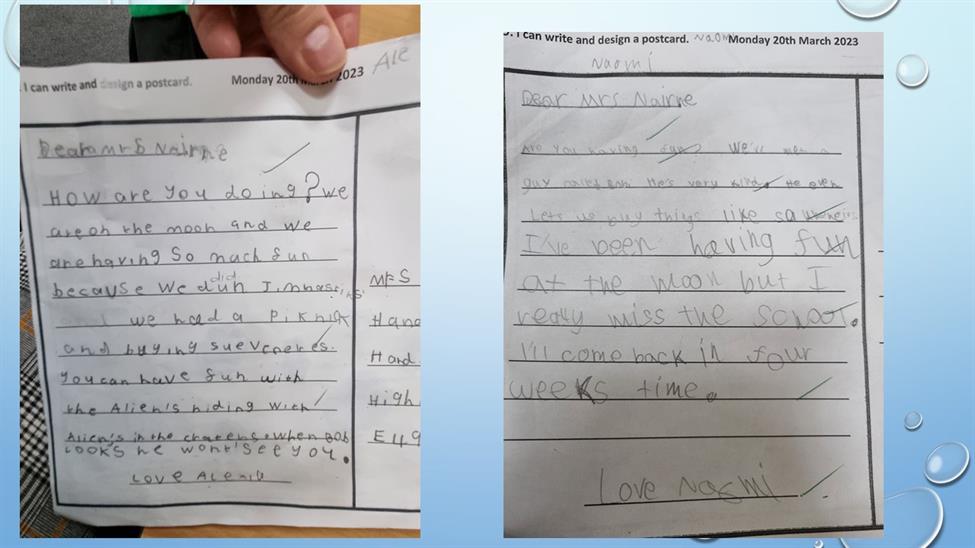 . I can write and design a postcard. Monday 20th March 2023
Dear Mrs Nairne
How are you doing? we
are on the moon and we
are having so much fun
because we did
we had a piknik
and buying
you can have fun with
the Alien's hiding with
Alien's in the when Bob
Looks he wont see you.
Love
Mrs
Hand
High
. I can write and design a postcard. Naomi Monday 20th March 2023
Naomi
Dear Mrs Nairne
Are you having fun? We've met a
guy He's very kind. He even
Lets us buy things like
I've been having fun
at the moon but I
really miss the school.
I'll come back in four
weeks time.
Love Naomi